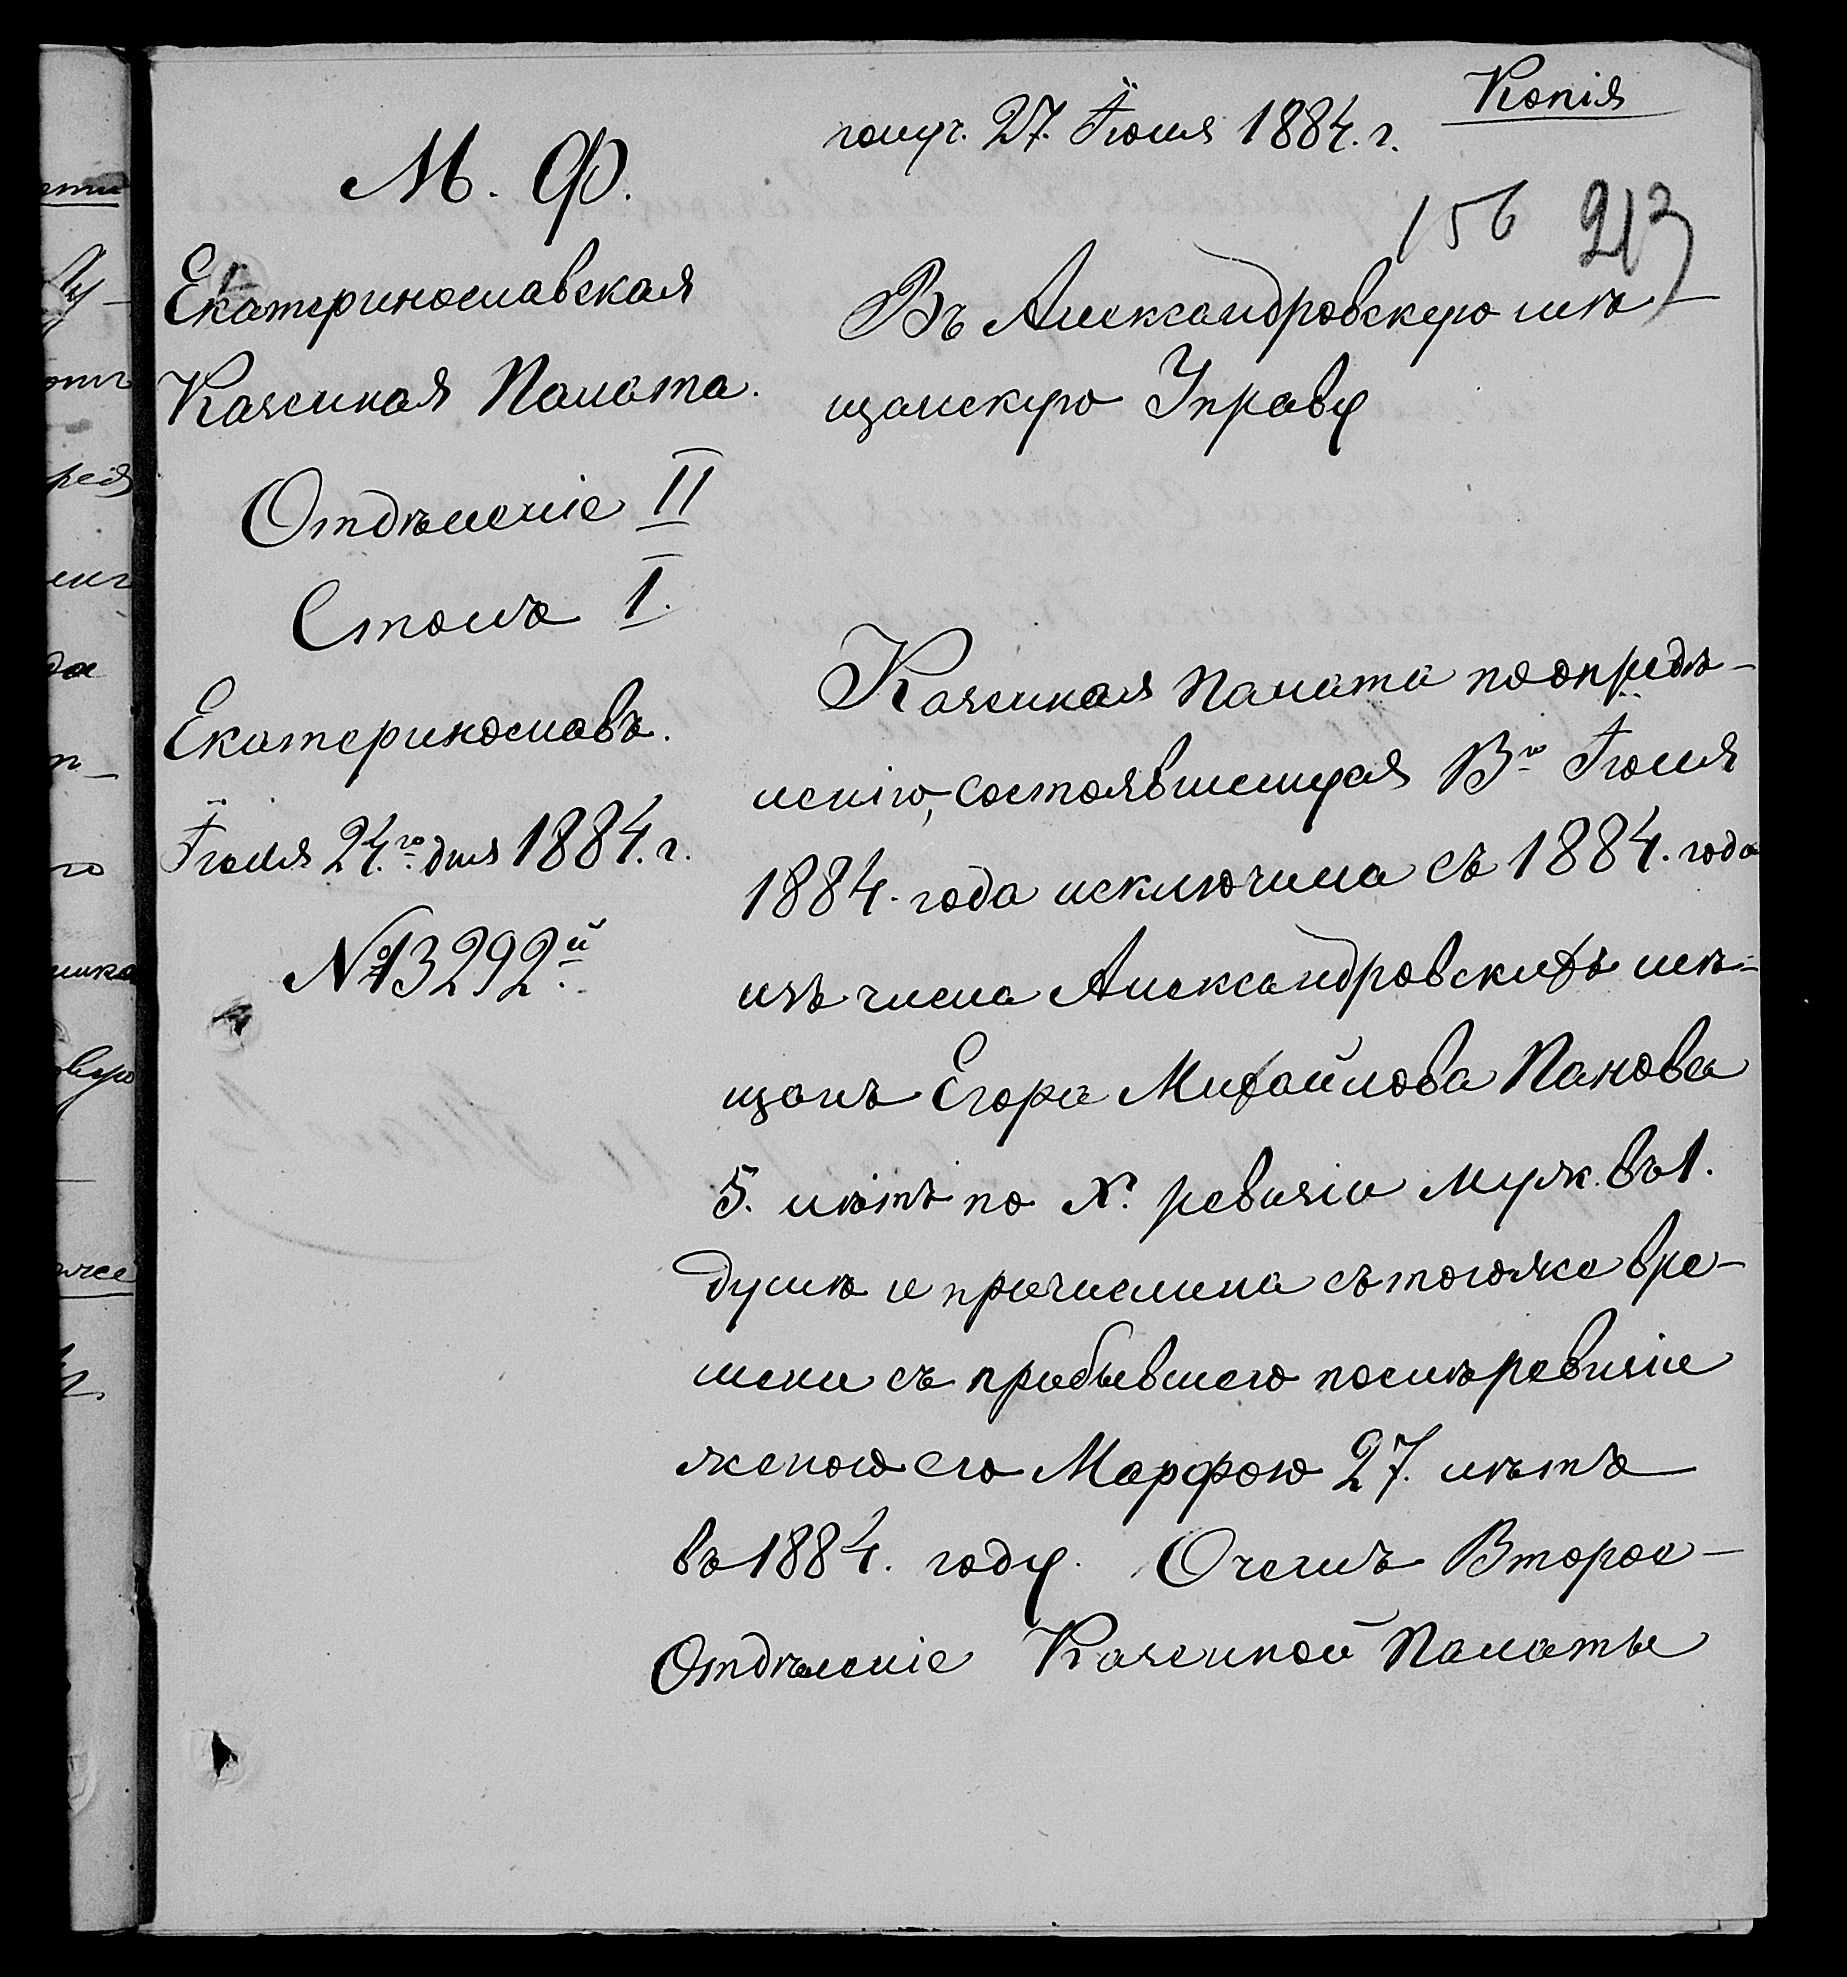 Копія
получ. 27. Іюня 1884. г.
156 213
М. Ф.
Екатеринославская
Казенная Палата.
Отдѣленіе II
Столъ I.
Екатеринославъ.
Іюня 24.го дня 1884. г.
№ 13292й.
Въ Александровскую мѣ-
щанскую Управу
Казенная Палата по опредѣ-
ленію, состоявшемуся 13го Іюня
1884. года исключила съ 1884. года
изъ числа Александровскихъ мѣ-
щанъ Егора Михайлова Панова
5. лѣтъ по X. ревизіи муж. въ 1.
душѣ и причислила съ того же вре-
мени съ прибывшею послѣ ревизіи
женою его Марфою 27. лѣтъ
въ 1884. году. О чемъ Второе
Отдѣленіе Казенной Палаты